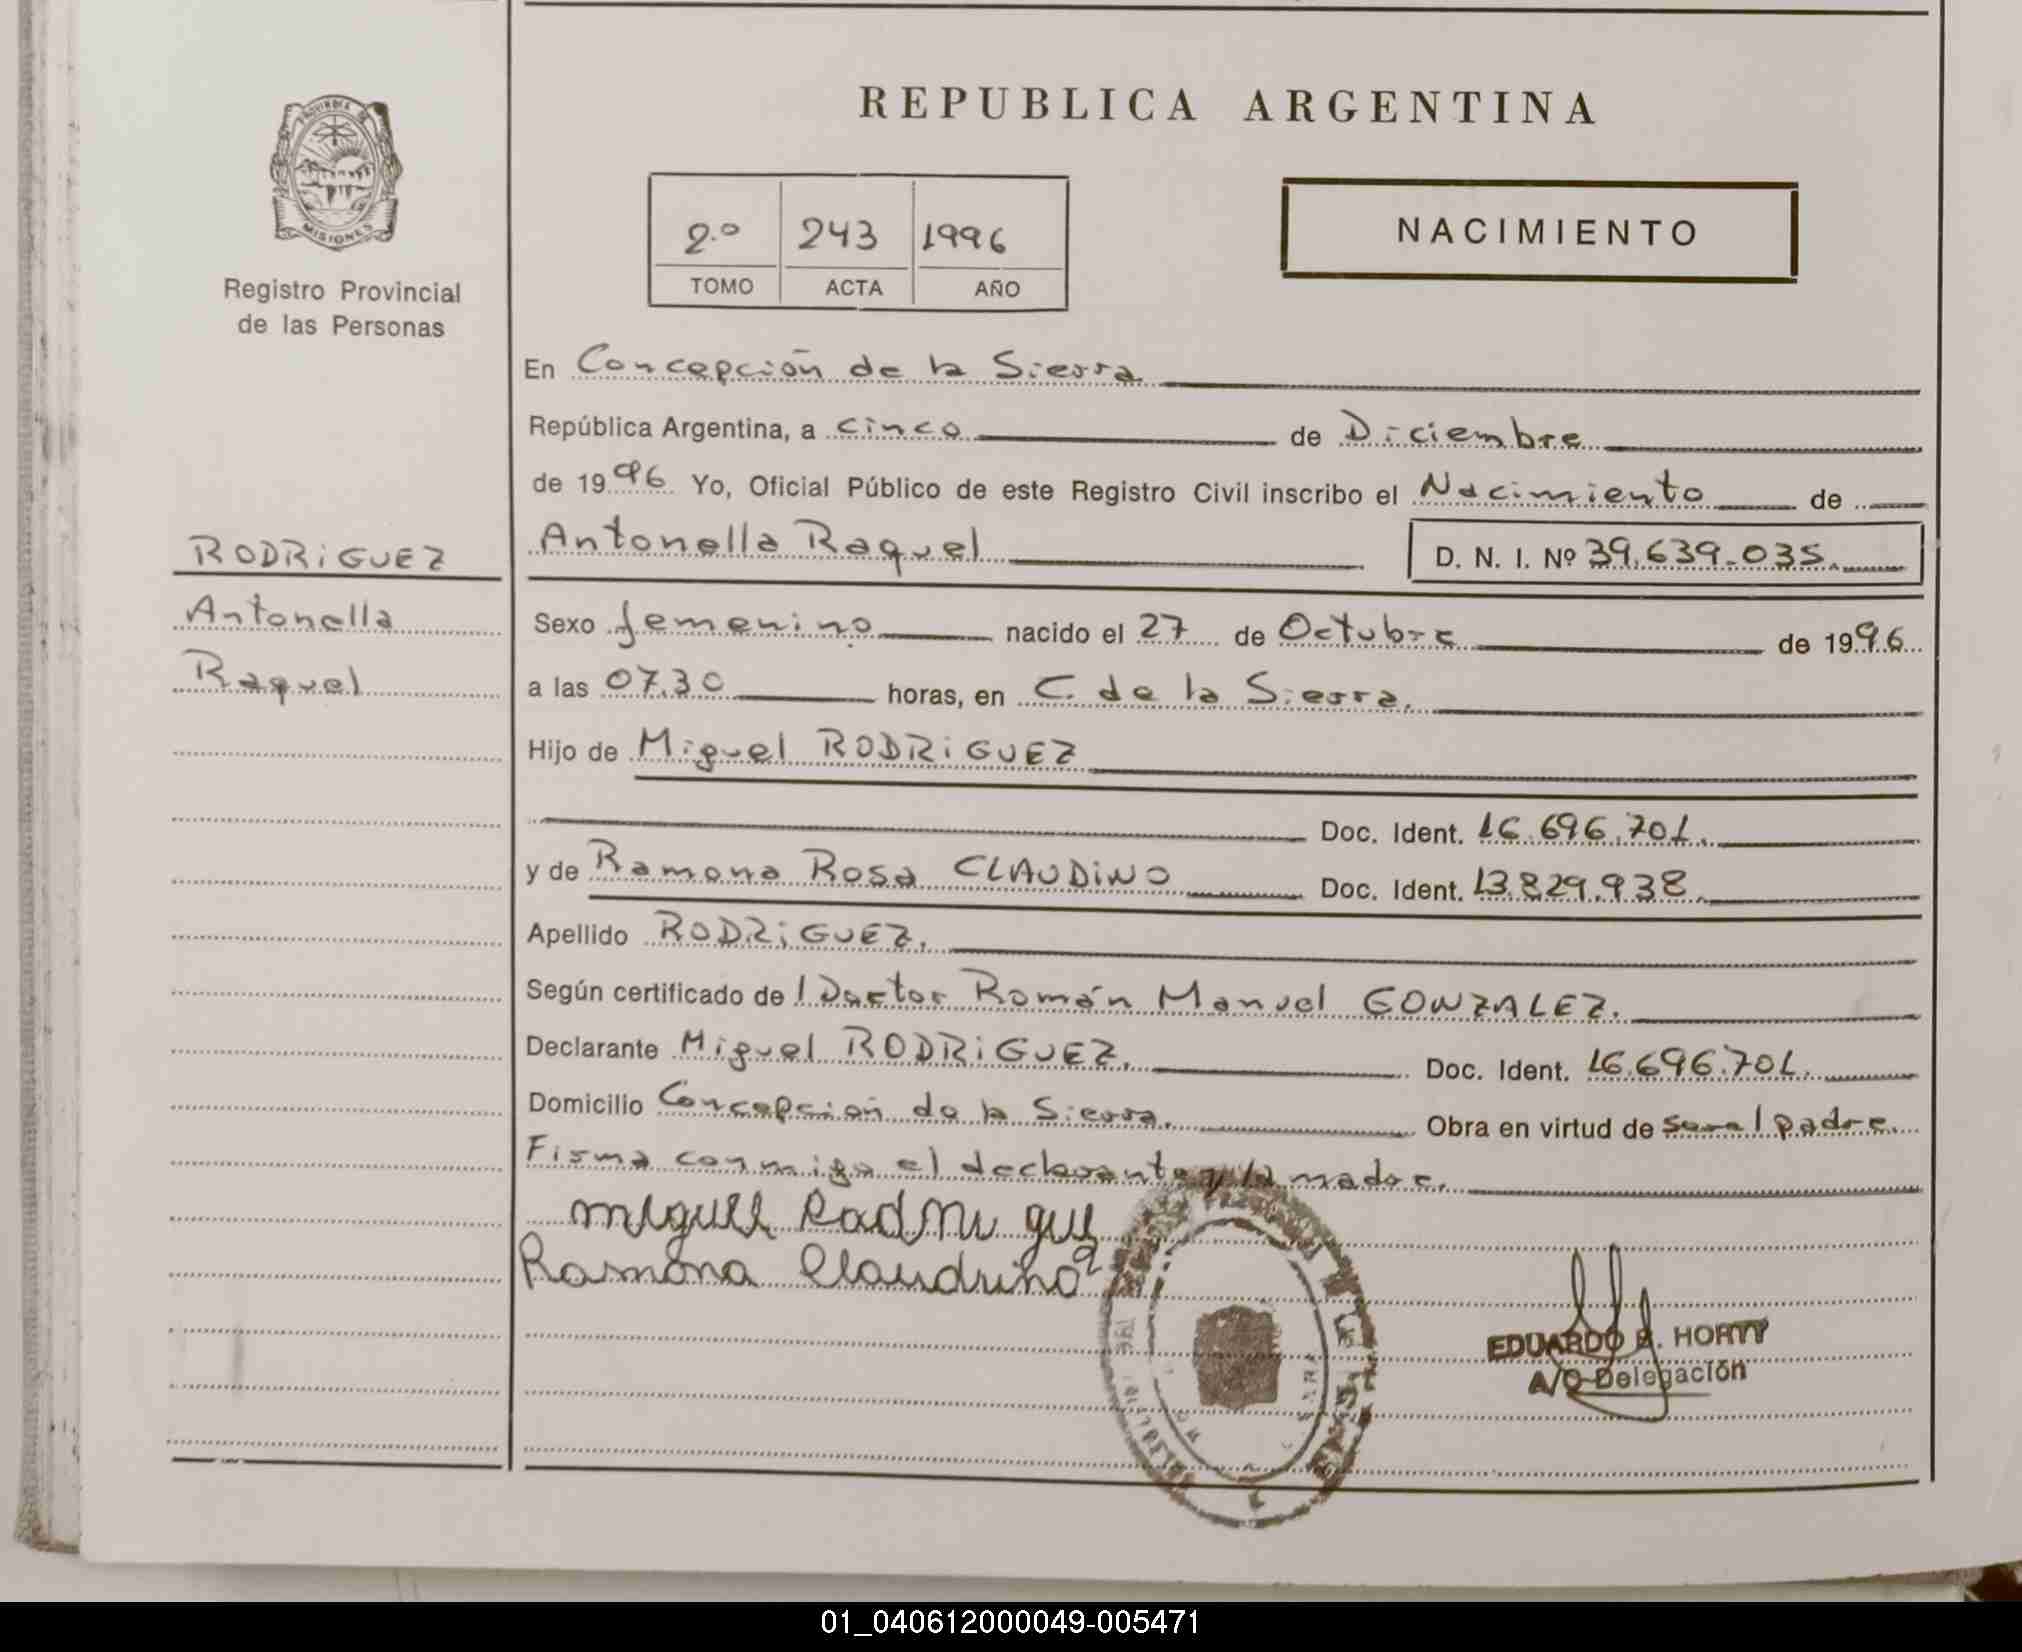 REPUBLICA ARGENTINA
PROVINCIA DE
MISIONES
Registro Provincial
de las Personas
2.º 243 1996
TOMO ACTA AÑO
NACIMIENTO
En Concepción de la Sierra
República Argentina, a cinco de Diciembre
de 1996 Yo, Oficial Público de este Registro Civil inscribo el Nacimiento de
Antonella Raquel D. N. I. Nº 39.639.035.
RODRiGUEZ
Antonella
Raquel
Sexo femenino nacido el 27 de Octubre de 1996
a las 07.30 horas, en C. de la Sierra.
Hijo de Miguel RODRiGUEZ
Doc. Ident. 16.696.701.
y de Ramona Rosa CLAUDiNO Doc. Ident. 13.829.938.
Apellido RODRiGUEZ.
Según certificado de l Doctor Román Manuel GONZALEZ.
Declarante Miguel RODRiGUEZ. Doc. Ident. 16.696.701.
Domicilio Concepción de la Sierra. Obra en virtud de ser el padre.
Firma conmigo el declarante y la madre.
miguel Rodrigue
z
Ramona Claudino
EDUARDO R. HORTT
A/C Delegación
01_040612000049-005471